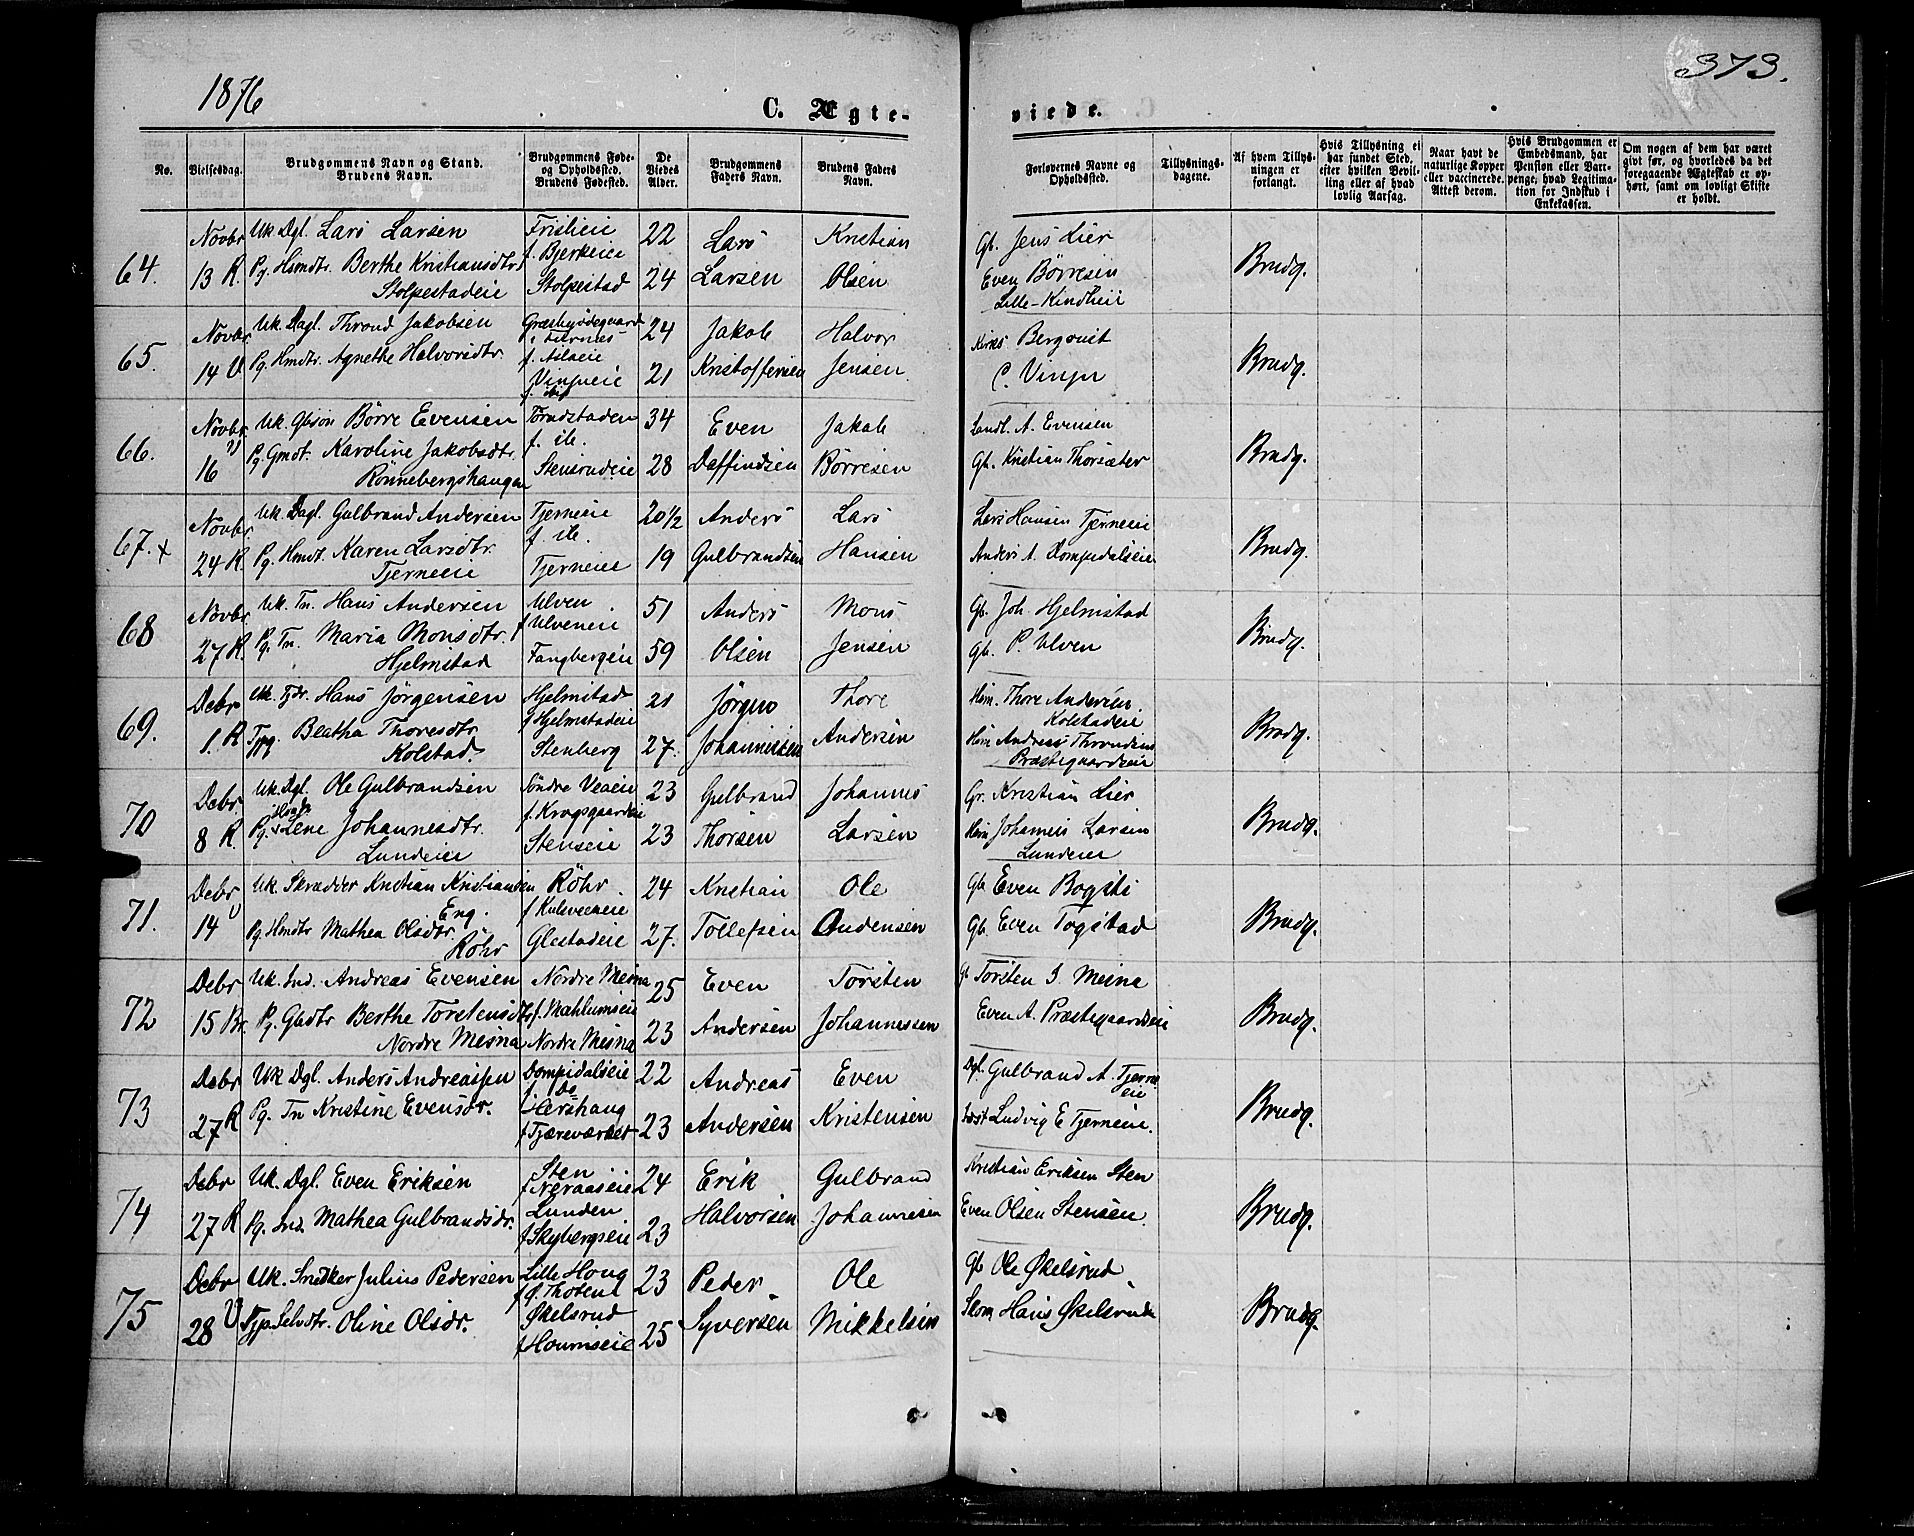 1876
373.
C. Ægte-
viede.
No.
Vielsesdag.
Brudgommens Navn og Stand.
Brudens Navn.
Brudgommens Føde-
og Opholdssted.
Brudens Fødested.
De
Viedes
Alder.
Brudgommens
Faders Navn.
Brudens Faders
Navn.
Forlovernes Navne og
Opholdssted.
Tillysnings-
dagene.
Af hvem Tillys-
ningen er
forlangt.
Hvis Tillysning ei
har fundet Sted,
efter hvilken Bevil-
ling eller af hvad
lovlig Aarsag.
Naar havt de
naturlige Kopper
eller vaccinerede.
Attest derom.
Hvis Brudgommen er
Embedsmand, har
Pension eller Vart-
penge, hvad Legitima-
tion for Indskud i
Enkekassen.
Om nogen af dem har været
givt før, og hvorledes da det
foregaaende Ægteskab er op-
hørt, samt om lovligt Skifte
er holdt.
64.
Novbr
13 R.
Uk Dgl. Lars Larsen
Pg. Hsmdtr. Berthe Kristiansdtr.
Stolpestadeie
f. Bjerkeie
Stolpestad
22
24
Lars
Larsen
Kristian
Olsen
Gb. Jens Lier
Even Børresen
Lille-Kindlieie
Brudg.
65.
Novbr
14 V
Uk. Dagl. Thrond Jakobsen
Pg. Hmdtr. Agnethe Halvorsdtr.
24
21
Jakob
Kristoffersen
Halvor
Jensen
Bergqvist
Brudg.
66.
Novbr.
16
Uk. Gbsøn Børre Evensen
Pg. Gmdt. Karoline Jakobsdtr.
Rønnebergshaugen
f. ib.
Stensrudeie
34
28
Even
Daffindsen
Jakob
Børresen
Landh. A. Evensen
Gb. Kristian Thorsæter
Brudg.
67. x
Novbr.
24 R.
Uk. Dagl. Gulbrand Andersen
Pg. Hmdt. Karen Larsdtr.
Tjerneeie
Tjerneie
f. ib.
Tjerneie
20½
19
Anders
Gulbrandsen
Lars
Hansen
Lars Hansen Tjerneie
Anders A. Dompidalseie
Brudg.
68
Novbr
27 R.
Uk. Tn. Hans Andersen
Pg. Tn. Maria Monsdtr.
Hjelmstad
Ulven
f Ulveneie
Fangbergeie
51
59
Anders
Olsen
Mons
Jensen
Gb. Joh. Hjelmstad
Gb. P. Ulven
Brudg.
69.
Debr
1. R
Uk. Tjdr. Hans Jørgensen
Tjpg. Beatha Thoresdtr.
Kolstad.
Hjelmstad
f Hjelmstadeie
Stenberg
21
27.
Jørgen
Johannessen
Thore
Andersen
Hsm. Thore Andersen.
Kolstadeie
Hsm Andreas Throndsen
Præstegaardseie
Brudg.
70
Debr.
8 R.
Uk. Dgl. Ole Gulbrandsen
Pg. Hsmdt Lene Johannesdtr.
Lundeie
Søndre Veaeie
f. Krogsgaardeie
Stenseie
23
23
Gulbrand
Thorsen
Johannes
Larsen
Gr. Kristian Lier
Hsm. Johannes Larsen
Lundeier
Brudg.
71.
Debr
14 V
Uk. Skrædder Kristian Kristiansen
Eng.
Pg. Hmdtr Mathea Olsdtr.
Röhr
Röhr
f Kulsveeneie
Glestadeie
24
27.
Kristian
Tollefsen
Ole
Andersen
Gb. Even Bogsti
Gb. Even Togstad
Brudg.
72
Debr
15 Br.
Uk. Ind. Andreas Evensen
Pg. Gbdtr Berthe Torstensdtr
Nordre Mesna
Nordre Mesna
f. Mæhlumseie
Nordre Mesna
25
23
Even
Andersen
Torsten
Johannessen
Gb Torsten J Mesna
Even A. Præstegaardseie
Brudg.
73
Debr
27 R
Uk Dgl. Anders Andreassen
Pg. Tn Kristine Evensdr.
Dompidalseie
f. Do
Hershaug
f Tjæreværket
22
23
Andreas
Andersen
Even
Kristensen
Dgl. Gulbrand A. Tjerns
eie
Ludvig E Tjerneie.
Brudg.
74
Debr
27 R
Uk. Dgl. Even Eriksen
Pg. Ind. Mathea Gulbrandsdr.
Sten
f Neraaseie
Lunden
f Skybergseie
24
23
Erik
Halvorsen
Gulbrand
Johannesen
Kristian Eriksen Sten
Even Olsen Stensen
Brudg.
75
Debr
28 V
Uk. Snedker Julius Pedersen
Tjp. Selvdtr. Oline Olsdr.
Lille Houg
f Ø. Thoten
Økelsrud
f Houmseie
23
25
Peder
Syversen
Ole
Mikkelsen
Gb Ole Økelsrud
Skom Hans Økelsrud
Brudg.